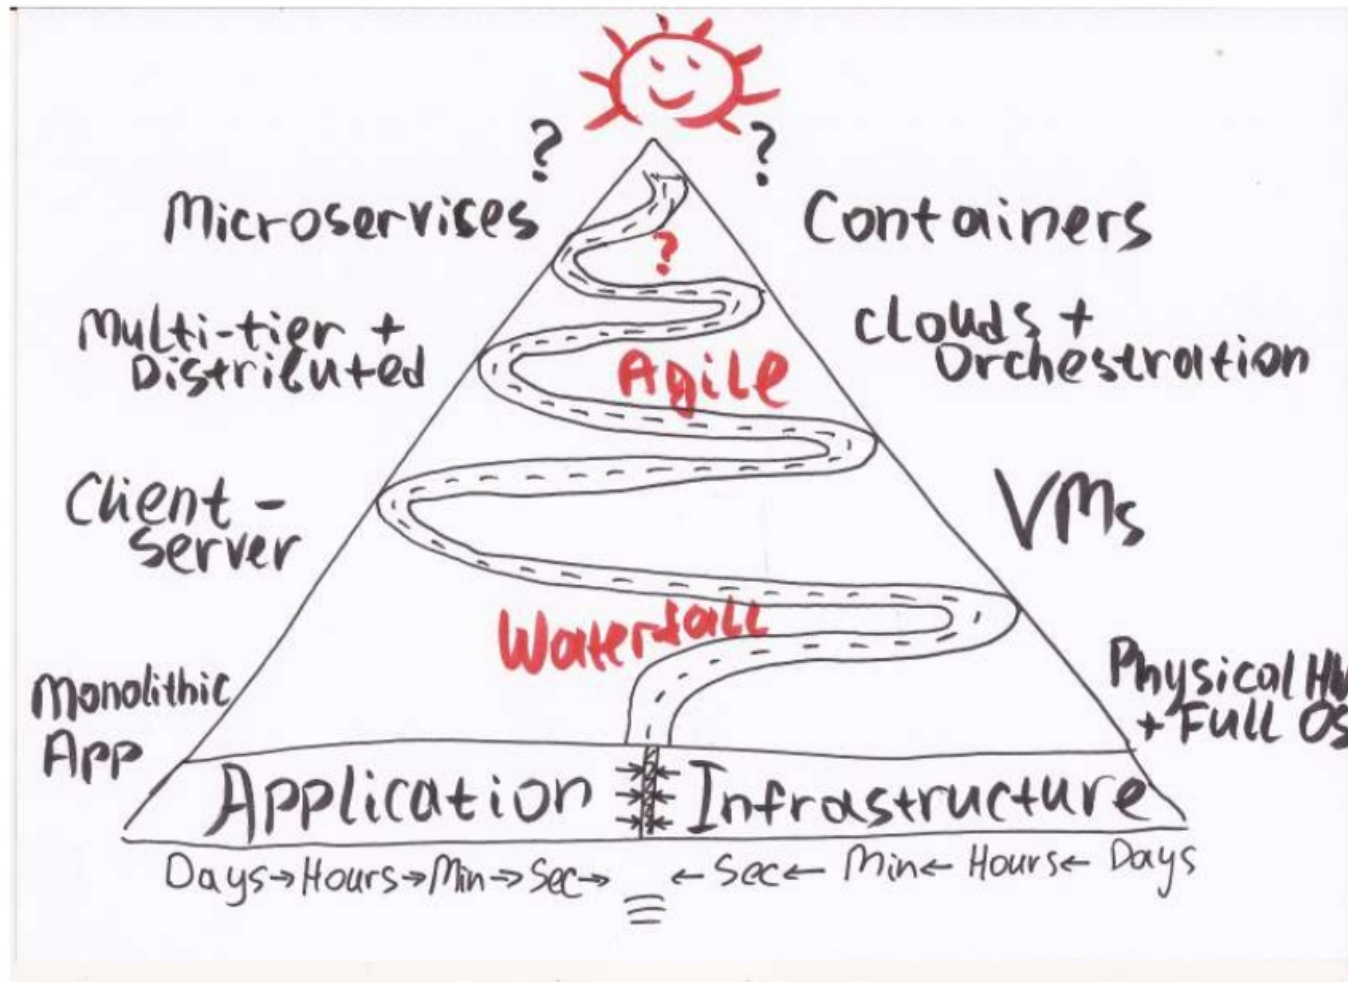 ? ?
Microservises Containers
Multi-tier + Clouds +
Distributed Orchestration
?
Agile
Client - VMs
Server
Waterfall
Monolithic Physical HW
App + Full OS
Application Infrastructure
Days→Hours→Min→Sec→ ←Sec← Min← Hours← Days